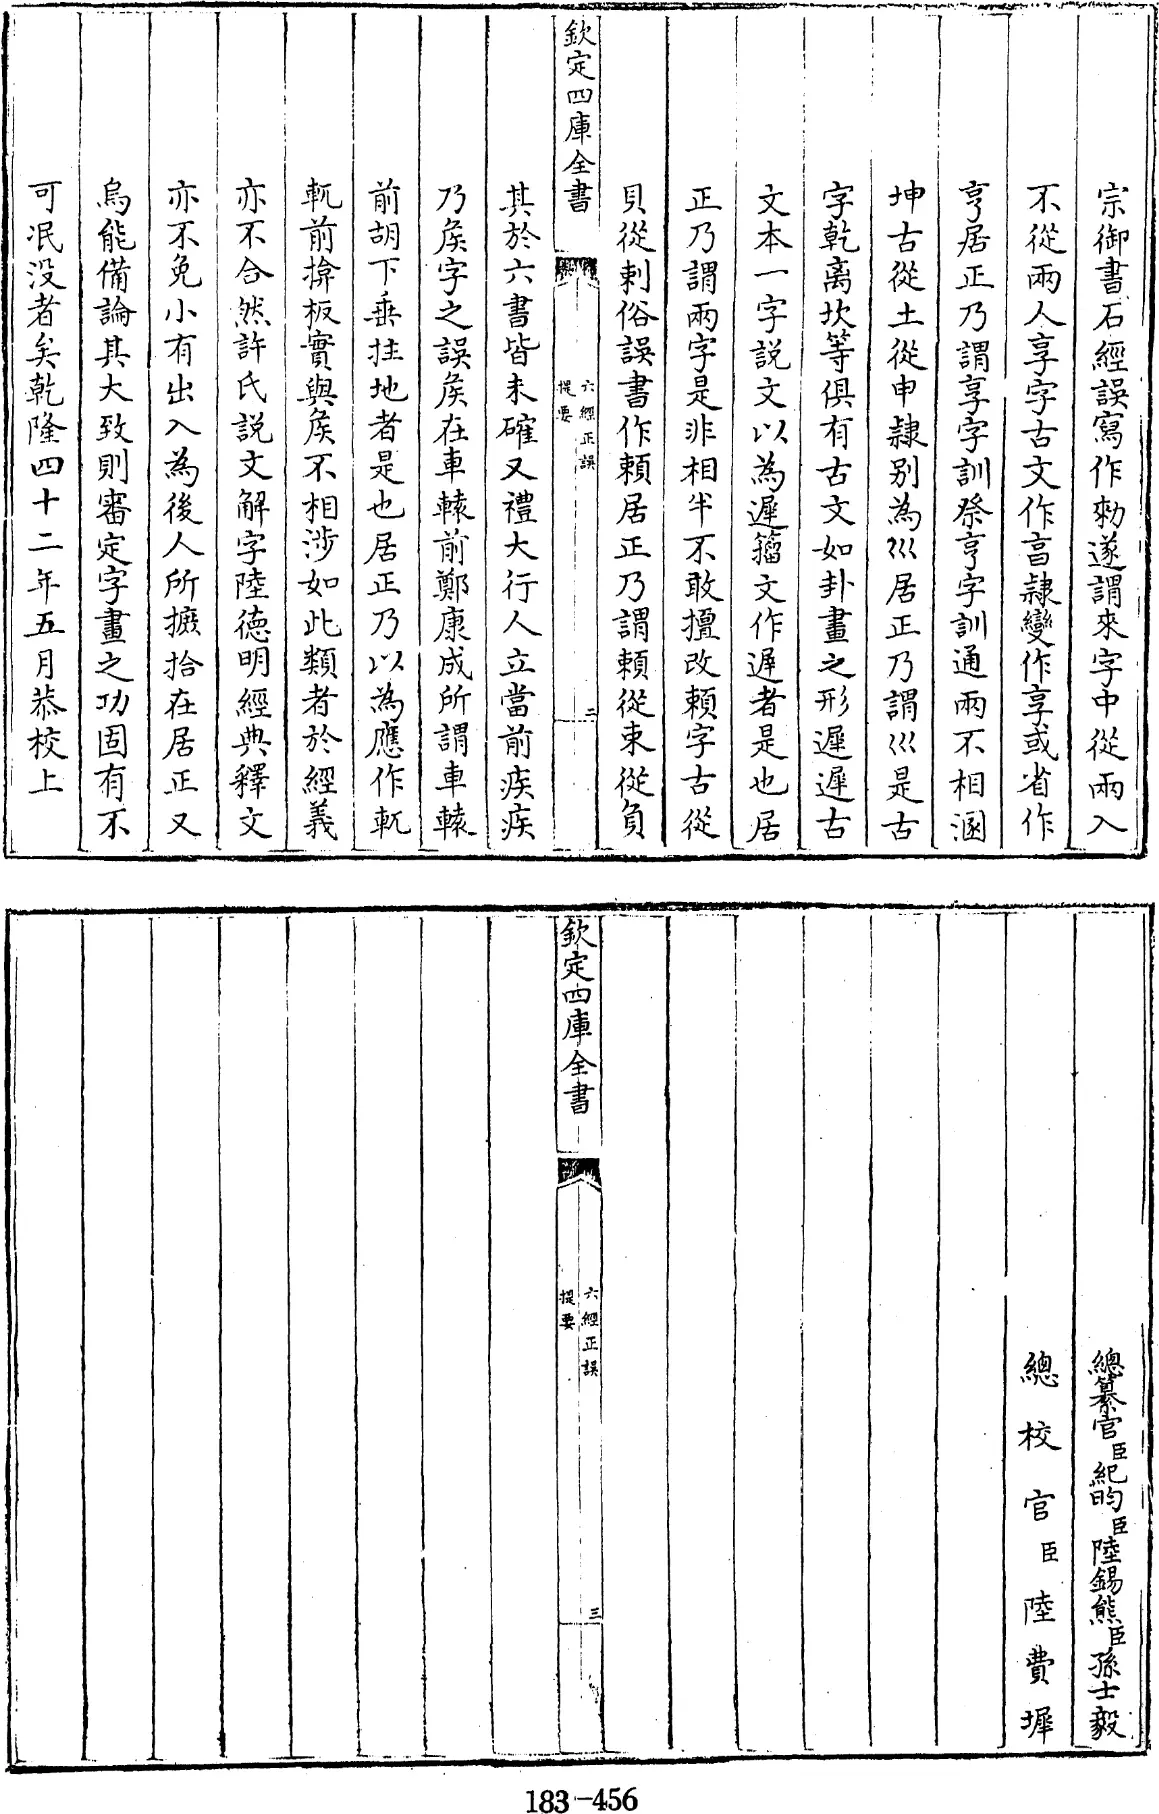 宗御書石經誤寫作勑遂謂來字中從兩入
不從兩人享字古文作亯隸變作享或省作
亨居正乃謂享字訓祭亨字訓通兩不相涵
坤古從土從申隸别為巛居正乃謂巛是古
字乾离坎等俱有古文如卦畫之形遲遟古
文本一字説文以為遲籀文作遟者是也居
正乃謂兩字是非相半不敢擅改賴字古從
貝從剌俗誤書作頼居正乃謂頼從束從負
欽定四庫全書
六經正誤
提要
二
其於六書皆未確又禮大行人立當前疾疾
乃矦字之誤矦在車轅前鄭康成所謂車轅
前胡下垂拄地者是也居正乃以為應作軓
軓前揜板實與矦不相涉如此類者於經義
亦不合然許氏説文解字陸徳明經典釋文
亦不免小有出入為後人所摭拾在居正又
烏能備論其大致則審定字畫之功固有不
可泯没者矣乾隆四十二年五月恭校上
總纂官臣紀昀臣陸錫熊臣孫士毅
總校官臣陸費墀
欽定四庫全書
六經正誤
提要
三
183-456